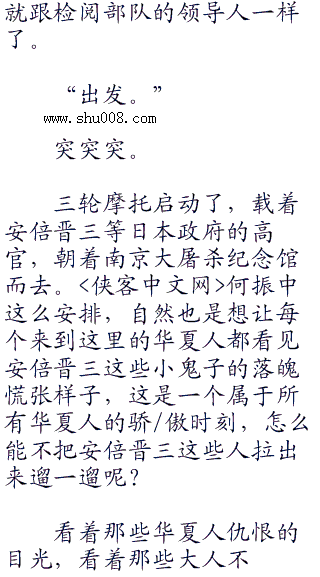 就跟检阅部队的领导人一样
了。
“出发。”
www.shu008.com
突突突。
三轮摩托启动了，载着
安倍晋三等日本政府的高
官，朝着南京大屠杀纪念馆
而去。<侠客中文网>何振中
这么安排，自然也是想让每
个来到这里的华夏人都看见
安倍晋三这些小鬼子的落魄
慌张样子，这是一个属于所
有华夏人的骄/傲时刻，怎么
能不把安倍晋三这些人拉出
来遛一遛呢？
看着那些华夏人仇恨的
目光，看着那些大人不